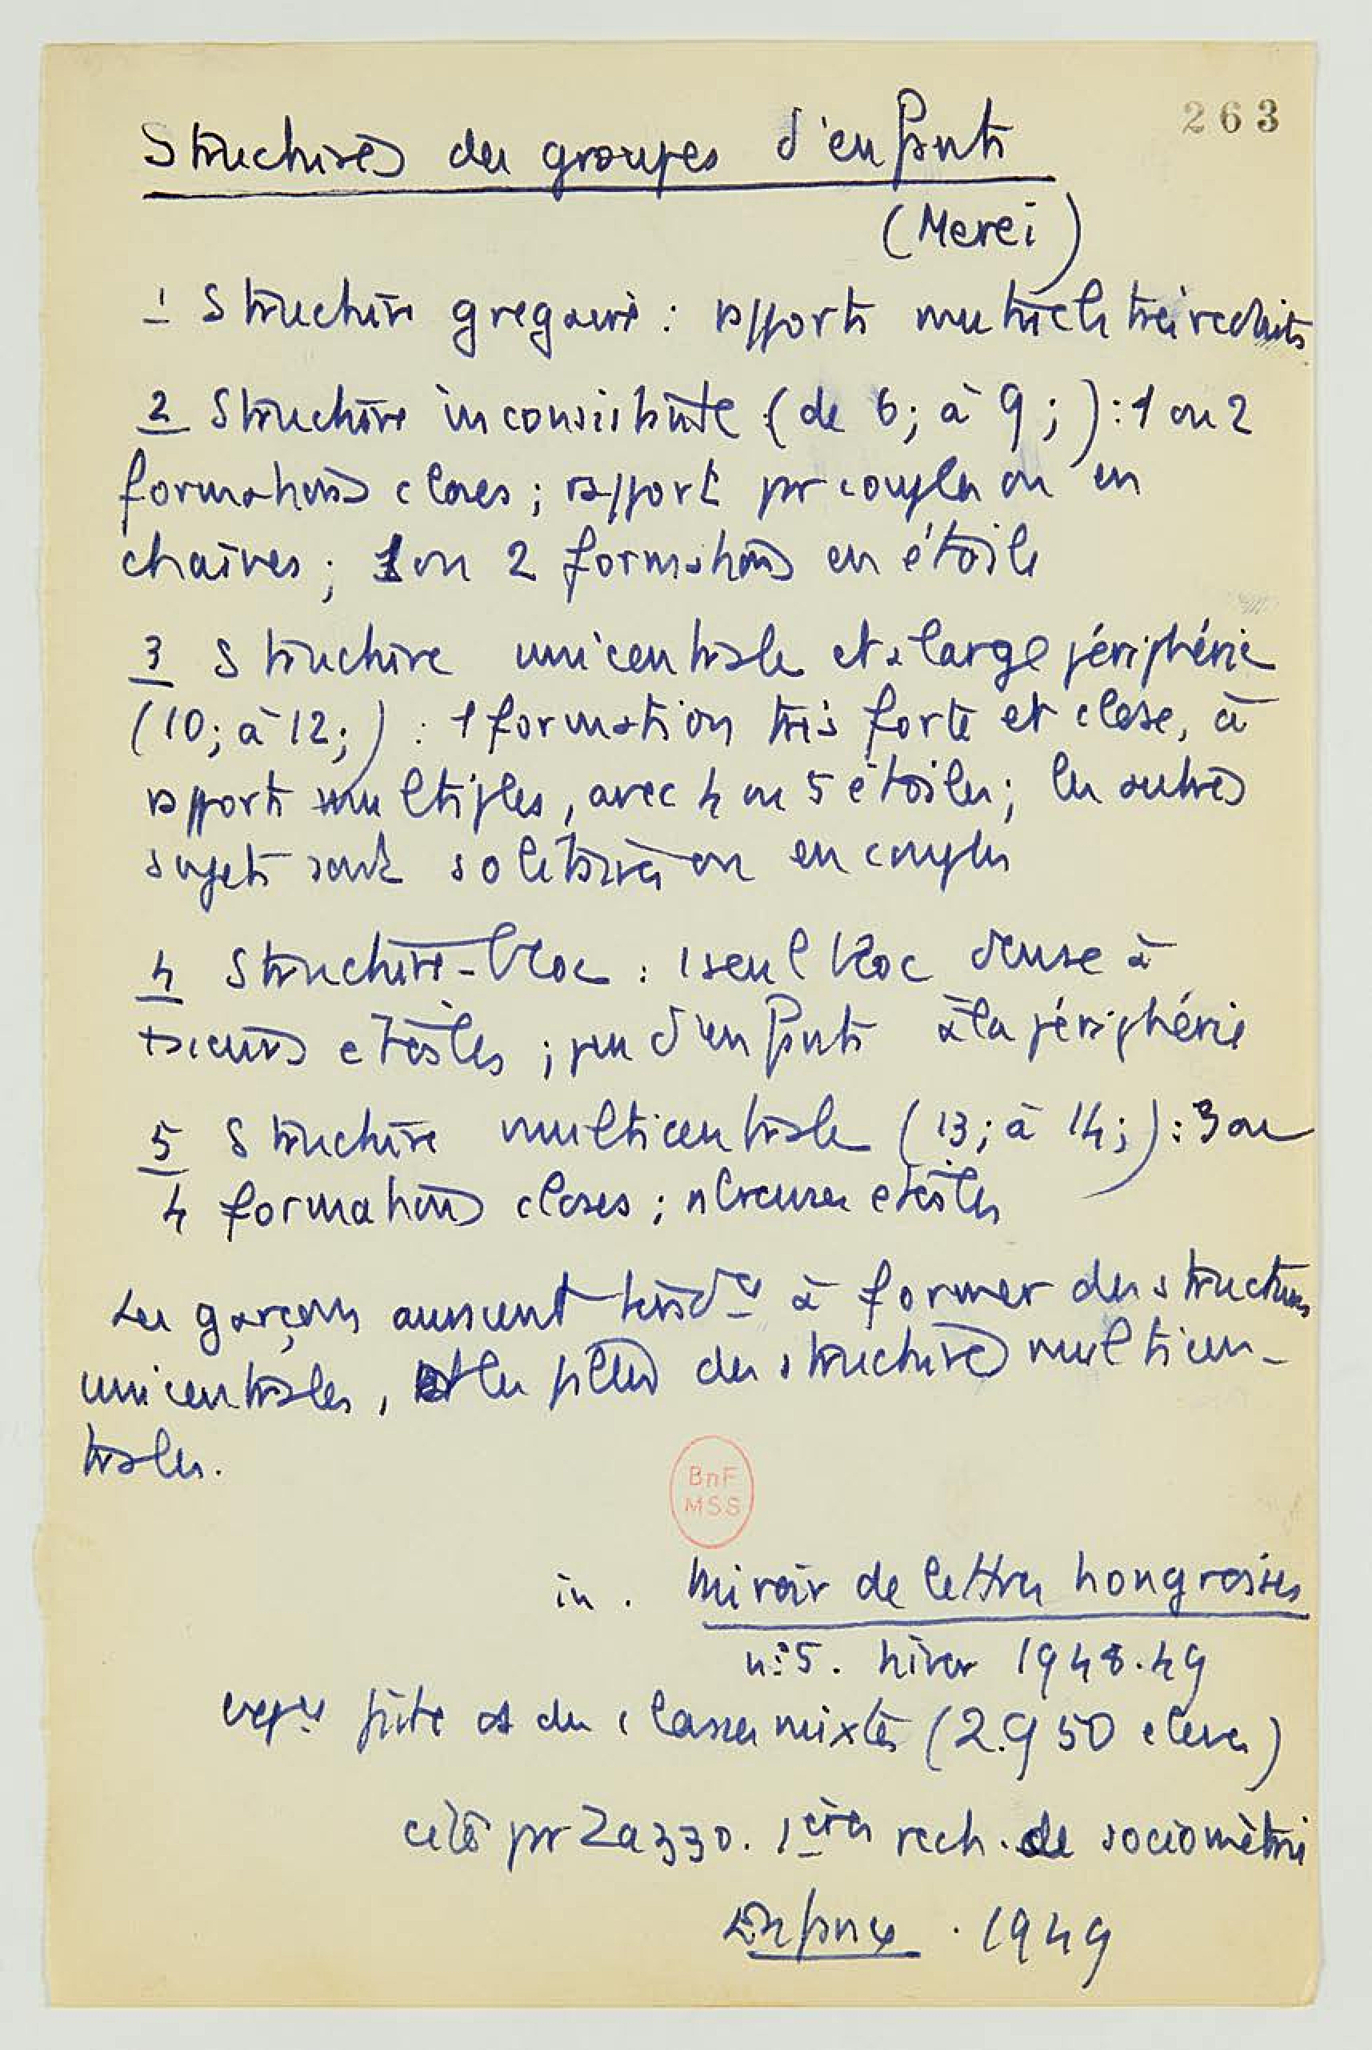 263
Structures des groupes d'enfants
(Merei)
1 Structure gregaire : rapports mutuels très reduits
2 Structure inconsistante (de 6; à 9;) : 1 ou 2
formations closes ; rapport par couples ou en
chaînes ; 1 ou 2 formations en étoile
3 Structure unicentrale et à large périphérie
(10; à 12;) : 1 formation très forte et close, à
rapports multiples, avec 4 ou 5 étoiles ; les autres
sujets sont solitaires ou en couples
4 Structure-bloc : 1 seul bloc dense à
+sieurs etoiles ; peu d'enfants à la périphérie
5 Structure multicentrale (13; à 14;) : 3 ou
4 formations closes ; nbreuses etoiles
Les garçons auraient tend^ce à former des structures
unicentrales, et les filles des structures multicen-
trales.
BnF
MSS
in. Miroir de lettres hongroises
n° 5. hiver 1948.49
faite ds des classes mixtes (2.950 eleves)
cité par Zazzo. 1ères rech. de sociométrie
Enfance . 1949